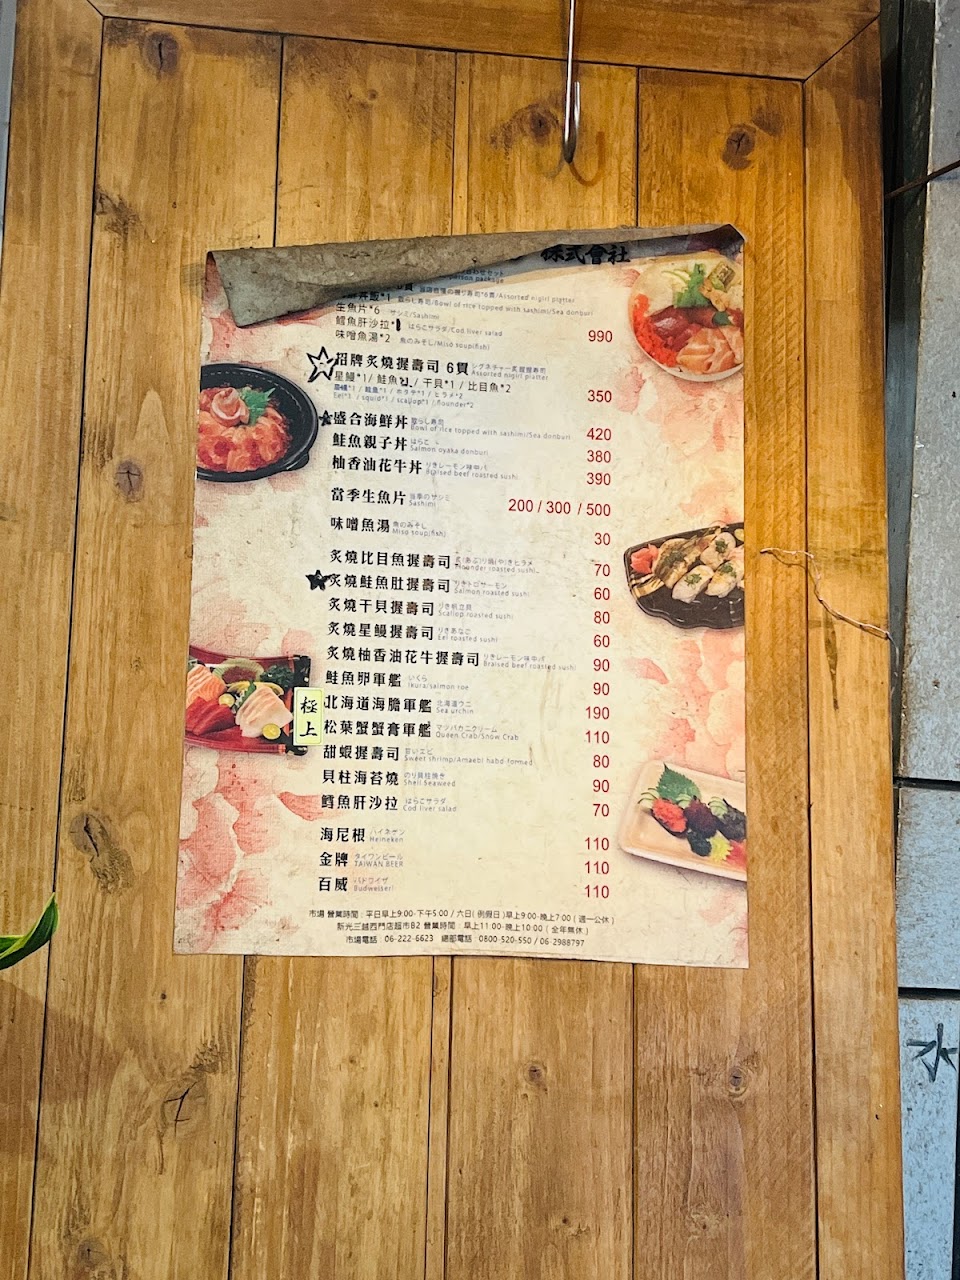 株式會社
わせセット
person package
當店自慢の握り寿司*6貫/Assorted nigiri platter
丼飯*1 散らし寿司/Bowl of rice topped with sashimi/Sea donburi
生魚片*6 サシミ/Sashimi
鱈魚肝沙拉*1 はらこサラダ/Cod liver salad
味噌魚湯*2 魚のみそし/Miso soup(fish) 990
招牌炙燒握壽司 6貫 シグネチャー炙握握寿司
Assorted nigiri platter
星鰻*1 / 鮭魚 / 干貝*1 / 比目魚*2
Eel*1 / squid*1 / scallop*1 / flounder*2 350
盛合海鮮丼 散らし寿司
Bowl of rice topped with sashimi/Sea donburi 420
鮭魚親子丼 はらこ
Salmon oyaka donburi 380
柚香油花牛丼 りきレーモン味中バ
Braised beef roasted sushi 390
當季生魚片 当季のサシミ
Sashimi 200 / 300 / 500
味噌魚湯 魚のみそし
Miso soup(fish) 30
炙燒比目魚握壽司 炙(あぶ)り焼(や)きヒラメ
Flounder roasted sushi 70
炙燒鮭魚肚握壽司 りきトロサーモン
Salmon roasted sushi 60
炙燒干貝握壽司 りき帆立貝
Scallop roasted sushi 80
炙燒星鰻握壽司 りきあなご
Eel roasted sushi 60
炙燒柚香油花牛握壽司 りきレーモン味中バ
Braised beef roasted sushi 90
鮭魚卵軍艦 いくら
Ikura/salmon roe 90
極上
北海道海膽軍艦 北海道ウニ
Sea urchin 190
松葉蟹蟹膏軍艦 マツバカニクリーム
Queen Crab/Snow Crab 110
甜蝦握壽司 甘いエビ
Sweet shrimp/Amaebi habd-formed 80
貝柱海苔燒 のり貝柱焼き
Shell Seaweed 90
鱈魚肝沙拉 はらこサラダ
Cod liver salad 70
海尼根 ハイネケン
Heineken 110
金牌 タイワンビール
TAIWAN BEER 110
百威 バドワイザ
Budweiser 110
市場 營業時間：平日早上9:00-下午5:00 / 六日(例假日)早上9:00-晚上7:00 (週一公休)
新光三越西門店超市B2 營業時間：早上11:00-晚上10:00 (全年無休)
市場電話：06-222-6623 總部電話：0800-520-550 / 06-2988797
水